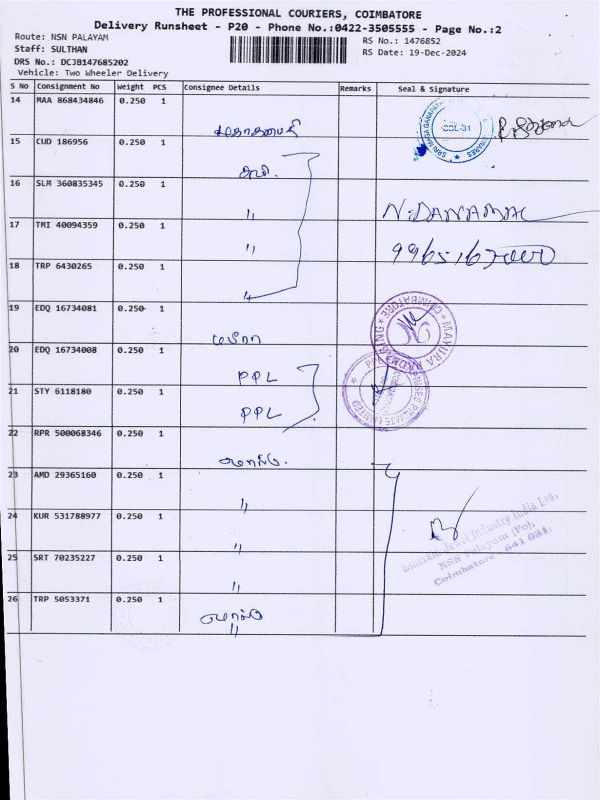 THE PROFESSIONAL COURIERS, COIMBATORE
Delivery Runsheet - P20 - Phone No.:0422-3505555 - Page No.:2
Route: NSN PALAYAM
RS No.: 1476852
Staff: SULTHAN
RS Date: 19-Dec-2024
DRS No.: DCJB147685202
Vehicle: Two Wheeler Delivery
S No Consignment No Weight PCS Consignee Details Remarks Seal & Signature
14 MAA 868434846 0.250 1
COL-31
15 CUD 186956 0.250 1
16 SLM 360835345 0.250 1
〃 N. DANAMAL
17 TMI 40094359 0.250 1
〃
18 TRP 6430265 0.250 1
〃
19 EDQ 16734081 0.250 1
மயூரா
MAYURA COIMBATORE
20 EDQ 16734008 0.250 1
PPL
21 STY 6118180 0.250 1
PPL
PRIVATE LIMITED
22 RPR 500068346 0.250 1
23 AMD 29365160 0.250 1
〃
24 KUR 531788977 0.250 1
〃
Emerald Jewel Industry India Ltd,
NSN Palayam (Po),
Coimbatore - 641 031.
25 SRT 70235227 0.250 1
〃
26 TRP 5053371 0.250 1
〃